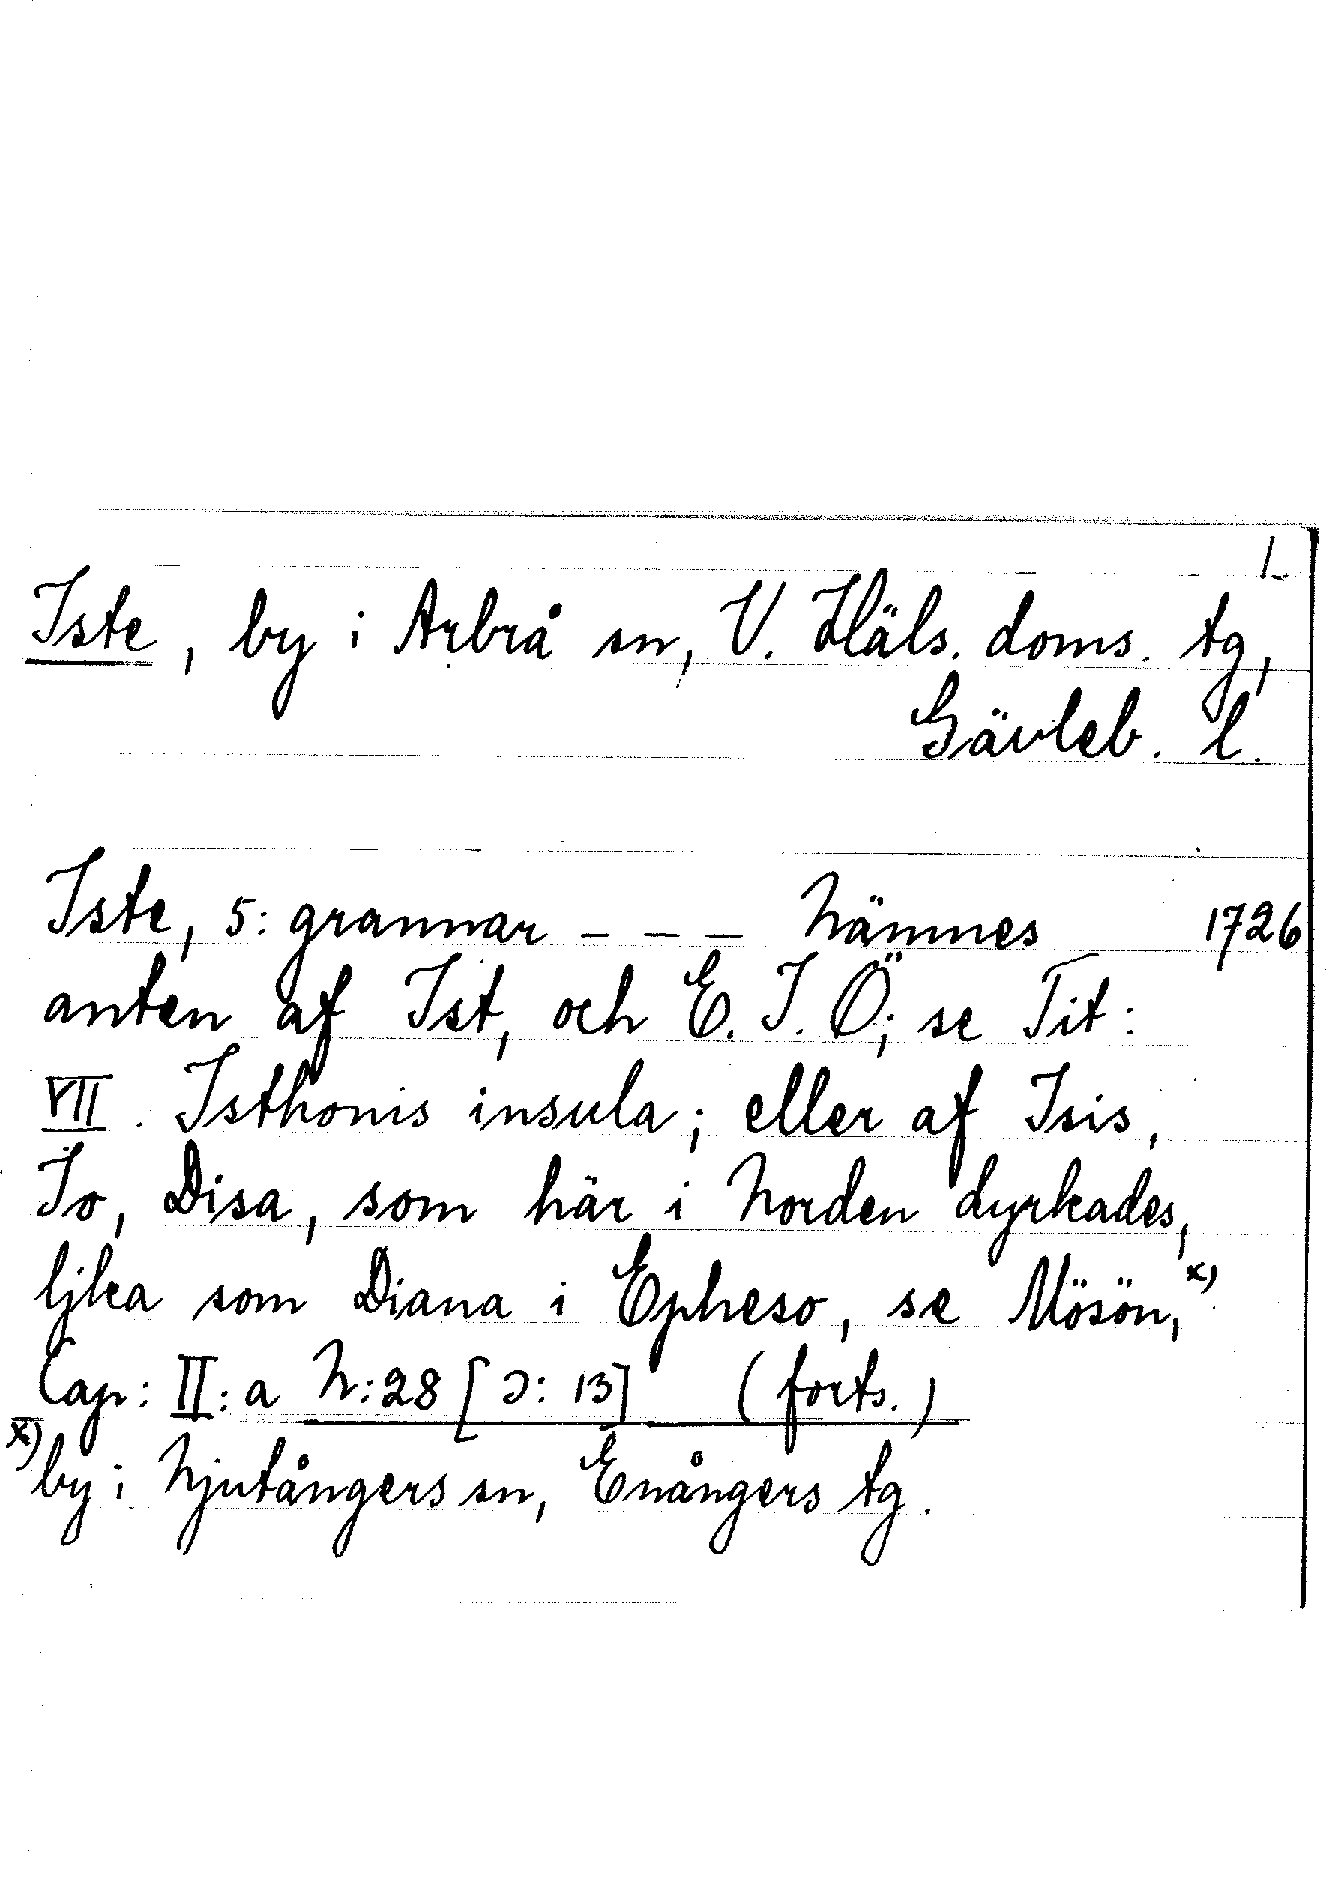 1.
Iste, by i Arbrå sn, V. Häls. doms. tg,
Gävleb. l.
Iste, 5: grannar _ _ _ Nämnes 1726
anten af Ist, och E. I. Ö; se Tit:
VII. Isthonis insula; eller af Isis,
Io, Disa, som här i Norden dyrkades,
ljka som Diana i Epheso, se Mösön, x)
Cap: II: a N:28 [ɔ: 13] (forts.)
x) by i Njutångers sn, Enångers tg.